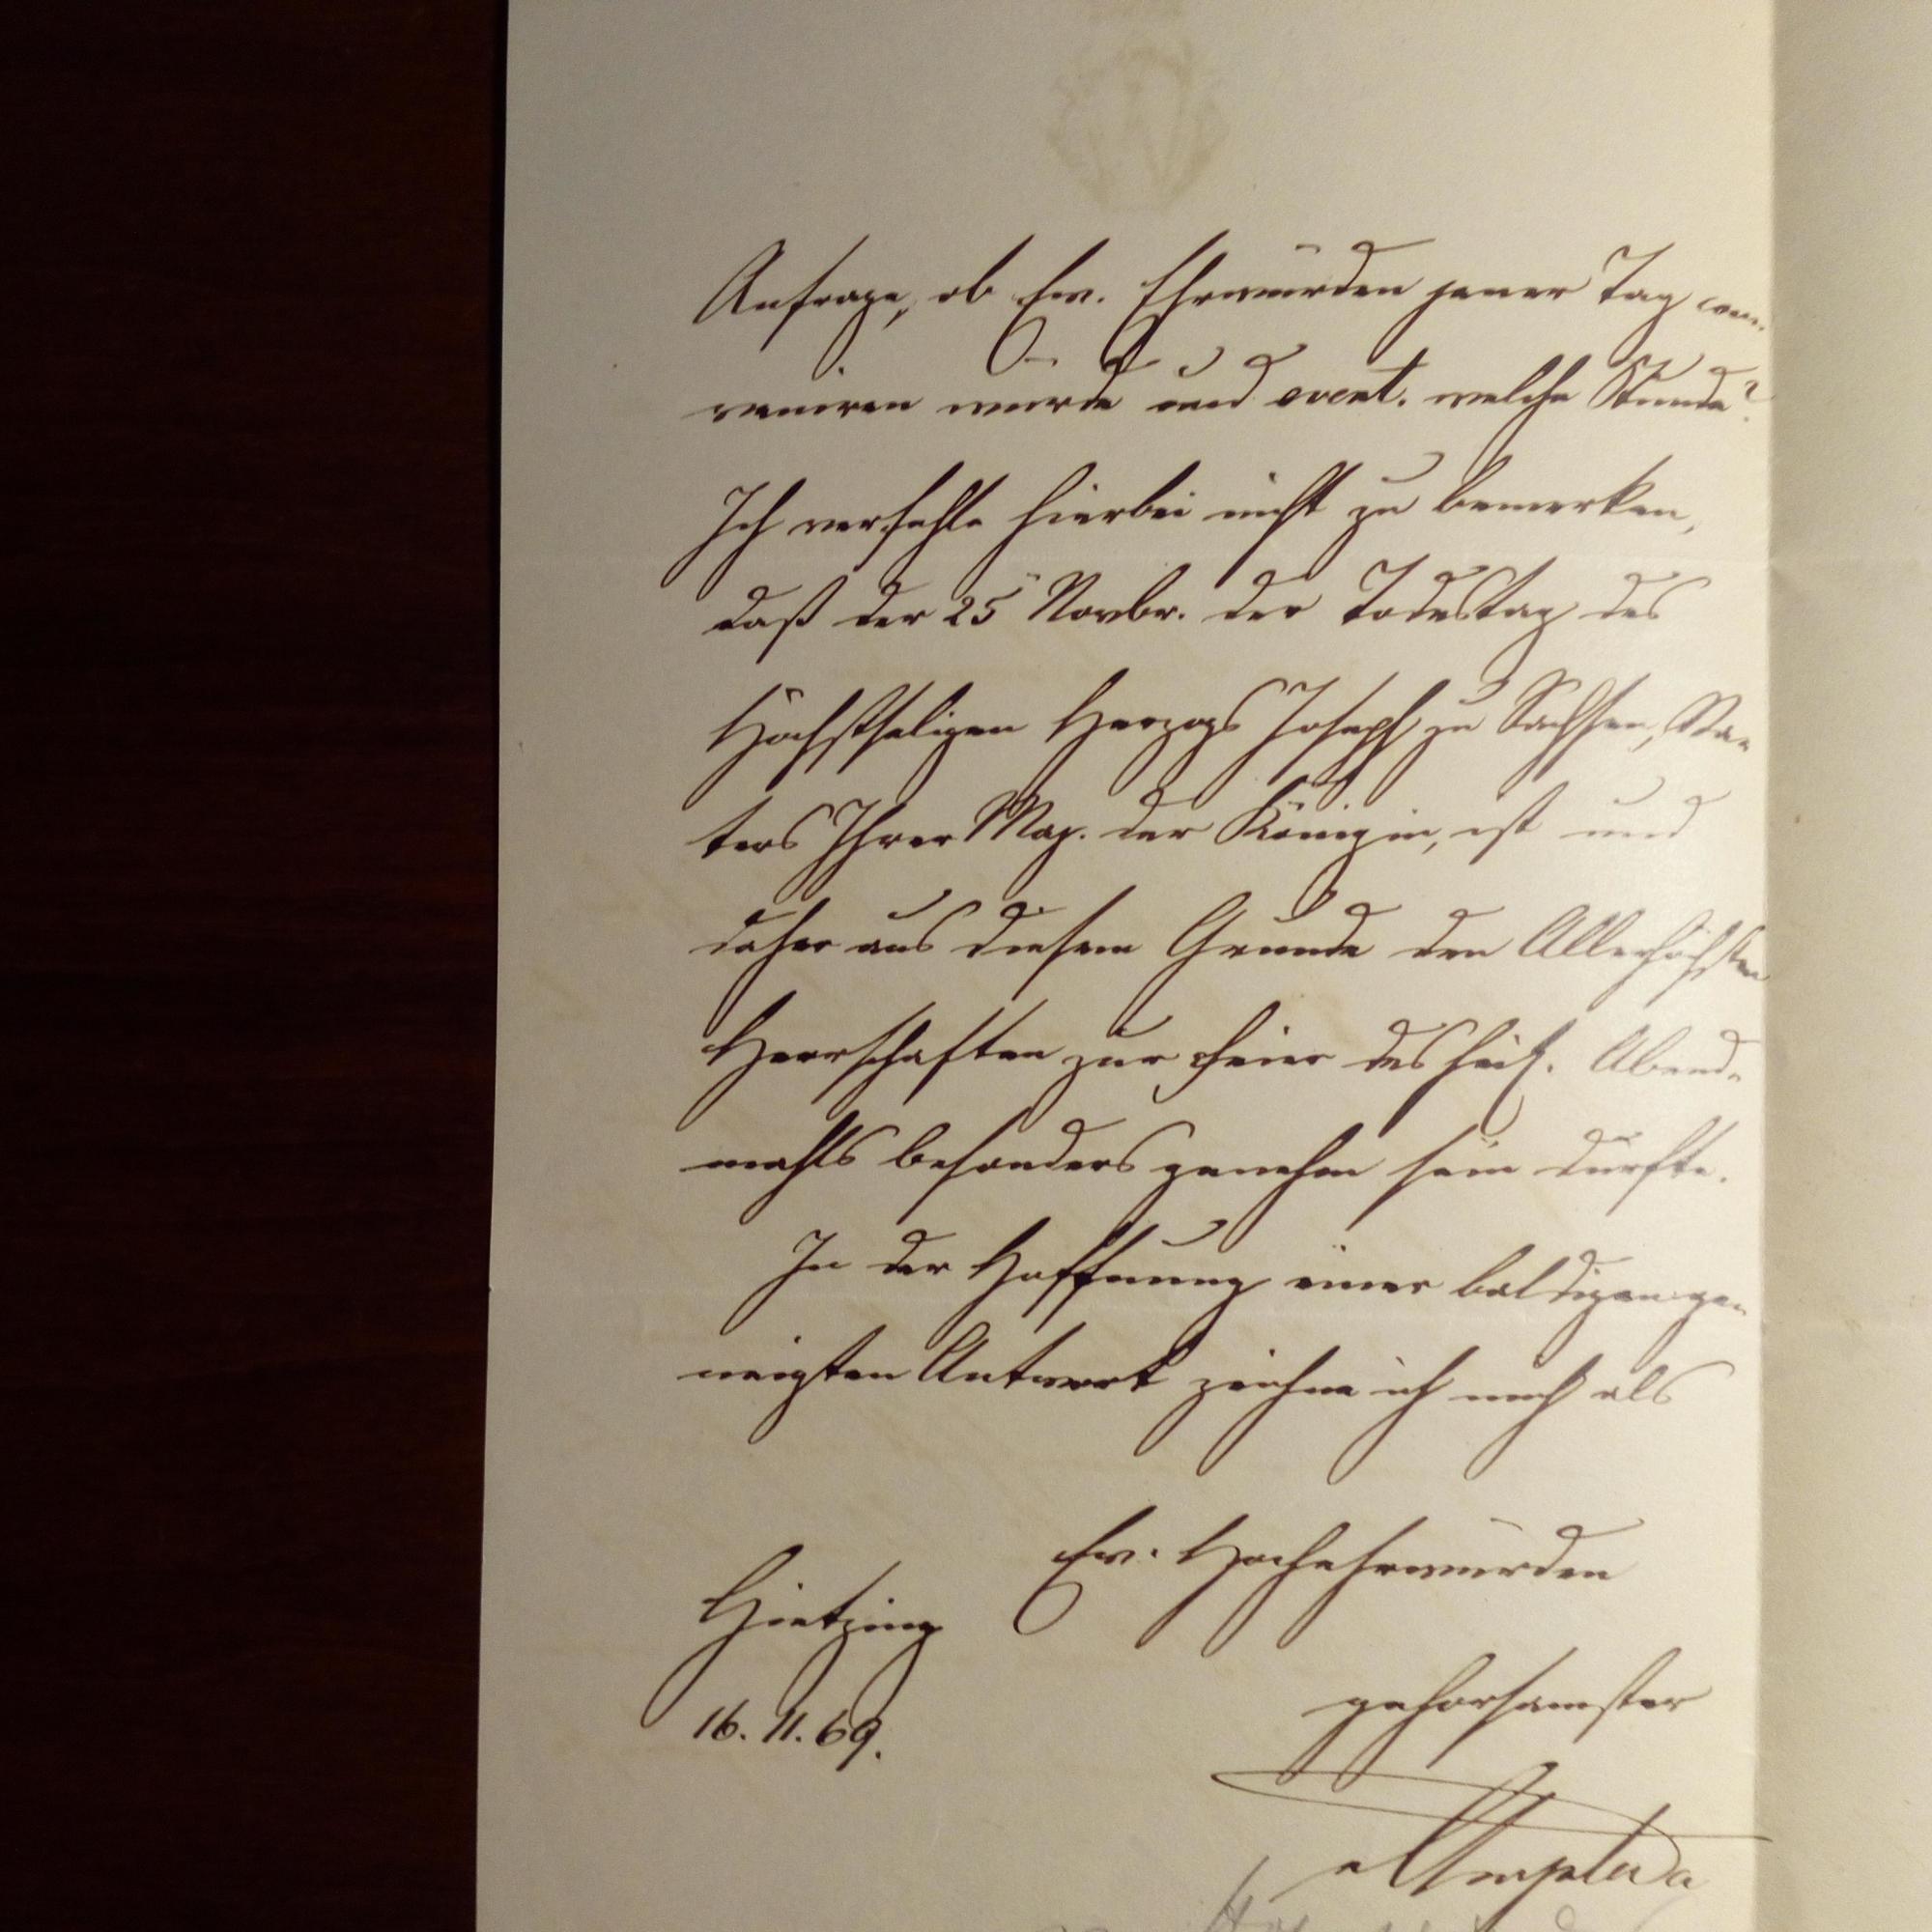 Anfrage, ob Ew. Ehrwürden jener Tag con-
veniren würde und event. welche Stunde?
Ich verfehle hierbei nicht zu bemerken,
daß der 25 Novbr. der Todestag des
Höchstseligen Herzogs Joseph zu Sachsen, Va-
ters Ihrer Maj. der Königin, ist und
daher aus diesem Grunde den Allerhöchsten
Herrschaften zur Feier des heil. Abend-
mahls besonders genehm sein dürfte.
In der Hoffnung einer baldigen ge-
neigten Antwort zeichne ich mich als
Ew. Hochehrwürden
Hietzing
gehorsamster
16. 11. 69.